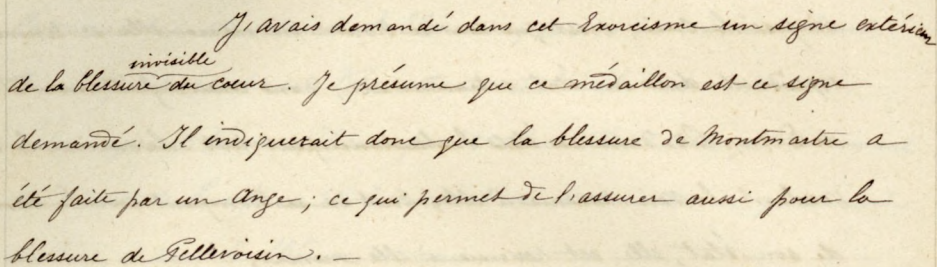 J'avais demandé dans cet Exorcisme un signe extérieur
invisible
de la blessure du coeur. Je présume que ce médaillon est ce signe
demandé. Il indiquerait donc que la blessure de Montmartre a
été faite par un Ange ; ce qui permet de l'assurer aussi pour la
blessure de Pellevoisin. —